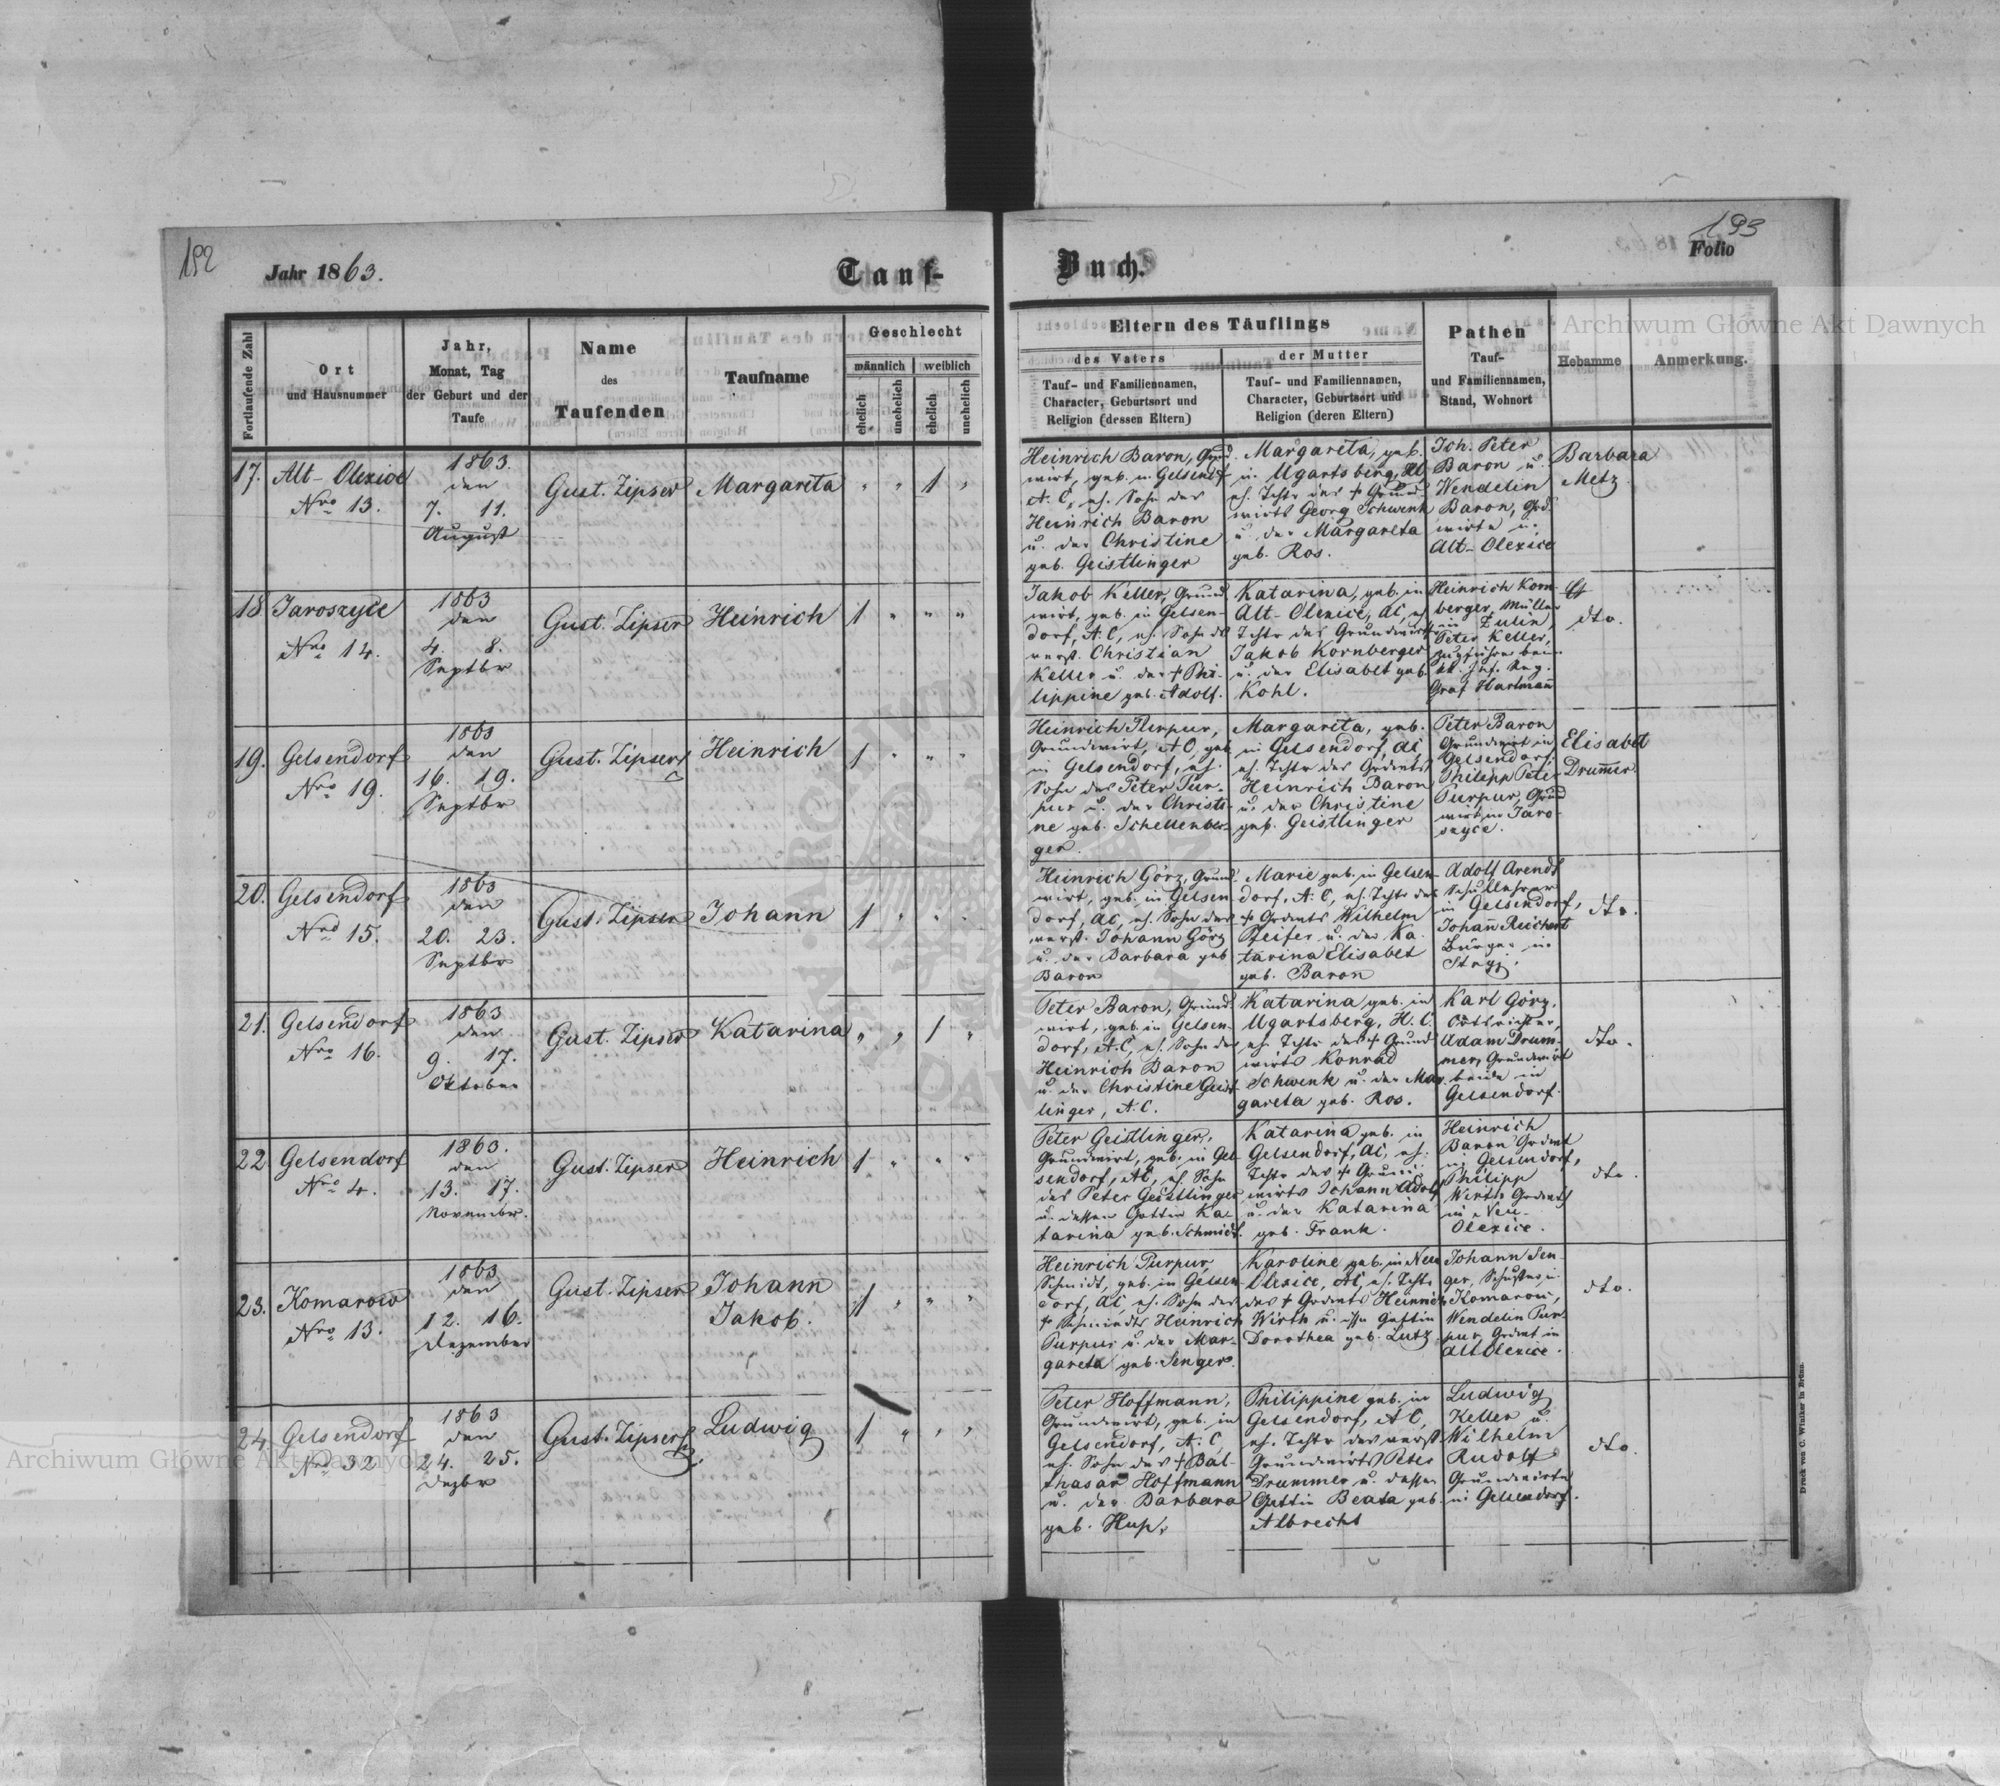 192
Jahr 1863.
Tauf-
Buch.
193
Folio
Fortlaufende Zahl
Ort
und Hausnummer
Jahr,
Monat, Tag
der Geburt und der
Taufe
Name
des
Taufenden
Taufname
Geschlecht
männlich
weiblich
ehelich
unehelich
ehelich
unehelich
Eltern des Täuflings
des Vaters
Tauf- und Familiennamen,
Character, Geburtsort und
Religion (dessen Eltern)
der Mutter
Tauf- und Familiennamen,
Character, Geburtsort und
Religion (deren Eltern)
Pathen
Tauf-
und Familiennamen,
Stand, Wohnort
Hebamme
Anmerkung.
17.
Alt-Olexice
Nro 13.
1863.
den
7. 11.
August
Gust. Zipser
Margareta
" " 1 "
Heinrich Baron, Grund
wirt, geb. in Gelsendf
A. C, eh. Sohn des
Heinrich Baron
u. der Christine
geb. Geistlinger
Margareta, geb.
in Ugartsberg, HC
eh. Tchtr des + Grund-
wirts Georg Schwenk
u. der Margareta
geb. Ros.
Joh. Peter
Baron u.
Wendelin
Baron, Grd.
wirte in
Alt-Olexice
Barbara
Metz
18
Jaroszyce
Nro 14.
1863
den
4. 8.
Septbr
Gust. Zipser
Heinrich
1 " " "
Jakob Keller, Grund
wirt, geb. in Gelsen-
dorf, A.C, eh. Sohn des
verst. Christian
Keller u. der + Phi-
lippine geb. Adolf.
Katarina, geb. in
Alt-Olexice, AC, eh
Tchtr des Grundwirts
Jakob Kornberger
u. der Elisabet geb.
Kohl.
Heinrich Korn-
berger, Müller
in Zulin,
Peter Keller,
Zugführer beim
Inf. Reg.
Graf Hartmann
dto.
19.
Gelsendorf
Nro 19.
1863
den
16. 19.
Septbr
Gust. Zipser
Heinrich
1 " " "
Heinrich Purpur,
Grundwirt, AC, geb
in Gelsendorf, eh.
Sohn des Peter Pur-
pur u. der Christi-
ne geb. Schellenber-
ger.
Margareta, geb.
in Gelsendorf, AC,
eh. Tchtr des Grdwts
Heinrich Baron
u. der Christine
geb. Geistlinger
Peter Baron
Grundwirt in
Gelsendorf,
Philipp Peter
Purpur, Grund
wirt in Jaro-
szyce.
Elisabet
Drummer.
20.
Gelsendorf
Nro 15.
1863
den
20. 23.
Septbr
Gust. Zipser
Johann
1 " " "
Heinrich Görz, Grund-
wirt, geb. in Gelsen
dorf, AC, eh. Sohn des
verst. Johann Görz
u. der Barbara geb
Baron
Marie geb. in Gelsen-
dorf, A.C, eh. Tchtr des
+ Grdwts Wilhelm
Pfeifer u. der Ka-
tarina Elisabet
geb. Baron
Adolf Arendt
Schullehrer
in Gelsendorf,
Johann Reichert
Bürger in
Stryj.
dto.
21.
Gelsendorf
Nro 16.
1863
den
9. 17.
Oktober
Gust. Zipser
Katarina
" " 1 "
Peter Baron, Grund-
wirt, geb. in Gelsen-
dorf, A.C, eh. Sohn des
Heinrich Baron
u. der Christine Geist-
linger, A.C.
Katarina geb. in
Ugartsberg, H.C.
eh. Tchtr des + Grund
wirts Konrad
Schwenk u. der Mar-
gareta geb. Ros.
Karl Görz,
Ortsrichter,
Adam Drum-
mer, Grundwirt
beide in
Gelsendorf.
dto.
22
Gelsendorf
Nro 4.
1863.
den
13. 17.
November.
Gust. Zipser
Heinrich
1 " " "
Peter Geistlinger,
Grundwirt, geb. in Gel
sendorf, AC, eh. Sohn
des Peter Geistlinger
u. dessen Gattin Ka-
tarina geb. Schmidt.
Katarina geb. in
Gelsendorf, AC, eh.
Tchtr des + Grund
wirts Johann Adolf
u. der Katarina
geb. Frank.
Heinrich
Baron Grdwt
in Gelsendorf,
Philipp
Wirth Grdwt
in Neu-
Olexice.
dto.
23.
Komarow
Nro 13.
1863
den
12. 16.
Dezember
Gust. Zipser
Johann
Jakob.
1 " " "
Heinrich Purpur,
Schmidt, geb. in Gelsen
dorf, AC, eh. Sohn des
+ Schmiedts Heinrich
Purpur u. der Mar-
gareta geb. Senger.
Karoline geb. in Neu
Olexice, AC, eh. Tchtr
des + Grdwts Heinrich
Wirth u. Gattin
Dorothea geb. Lutz.
Johann Sen-
ger, Schuster in
Komarow,
Wendelin Pur-
pur, Grdwt in
Alt Olexice.
dto.
24.
Gelsendorf
Nro 32
1863
den
24. 25.
Dezbr
Gust. Zipser
Ludwig
1 " " "
Peter Hoffmann,
Grundwirt, geb. in
Gelsendorf, A.C,
eh. Sohn des + Bal-
thasar Hoffmann
u. der Barbara
geb. Hup.
Philippine geb. in
Gelsendorf, AC,
eh. Tchtr des verst.
Grundwirts Peter
Drummer u. dessen
Gattin Beata geb.
Albrecht
Ludwig
Keller u.
Wilhelm
Rudolf
Grundwirte
in Gelsendorf.
dto.
Druck von C. Winiker in Brünn.
Archiwum Główne Akt Dawnych
Archiwum Główne Akt Dawnych